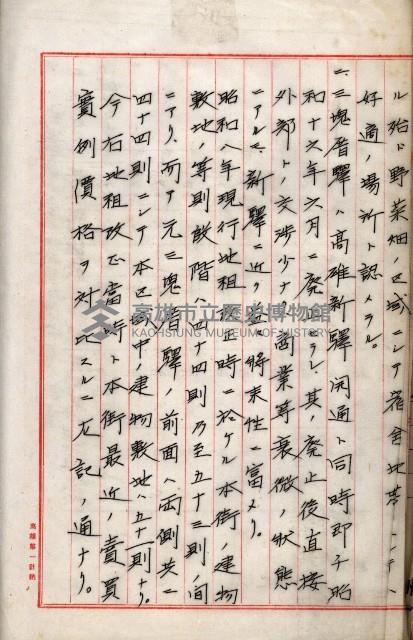 ル殆ド野菜畑ノ区域ニシテ宿舎地帯トシテハ
好適ノ場所ト認メラル。
二、三塊厝驛ハ高雄新驛開通ト同時即チ昭
和十六年六月ニ廃止セラレ其ノ廃止後直接
外部トノ交渉少ナク商業等衰微ノ狀態
ニアルモ新驛ニ近ク將来性ニ富メリ。
昭和八年現行地租改正時ニ於ケル本街ノ建物
敷地ノ等則段階ハ四十四則乃至五十三則ノ間
ニアリ、而テ元三塊厝驛ノ前面ハ両側共ニ
四十四則ニシテ本区域中ノ建物敷地ハ五十一則ナリ。
今右地租改正當時ト本街最近ノ賣買
實例價格ヲ対比スルニ左記ノ通ナリ。
高雄市立歷史博物館
KAOHSIUNG MUSEUM OF HISTORY